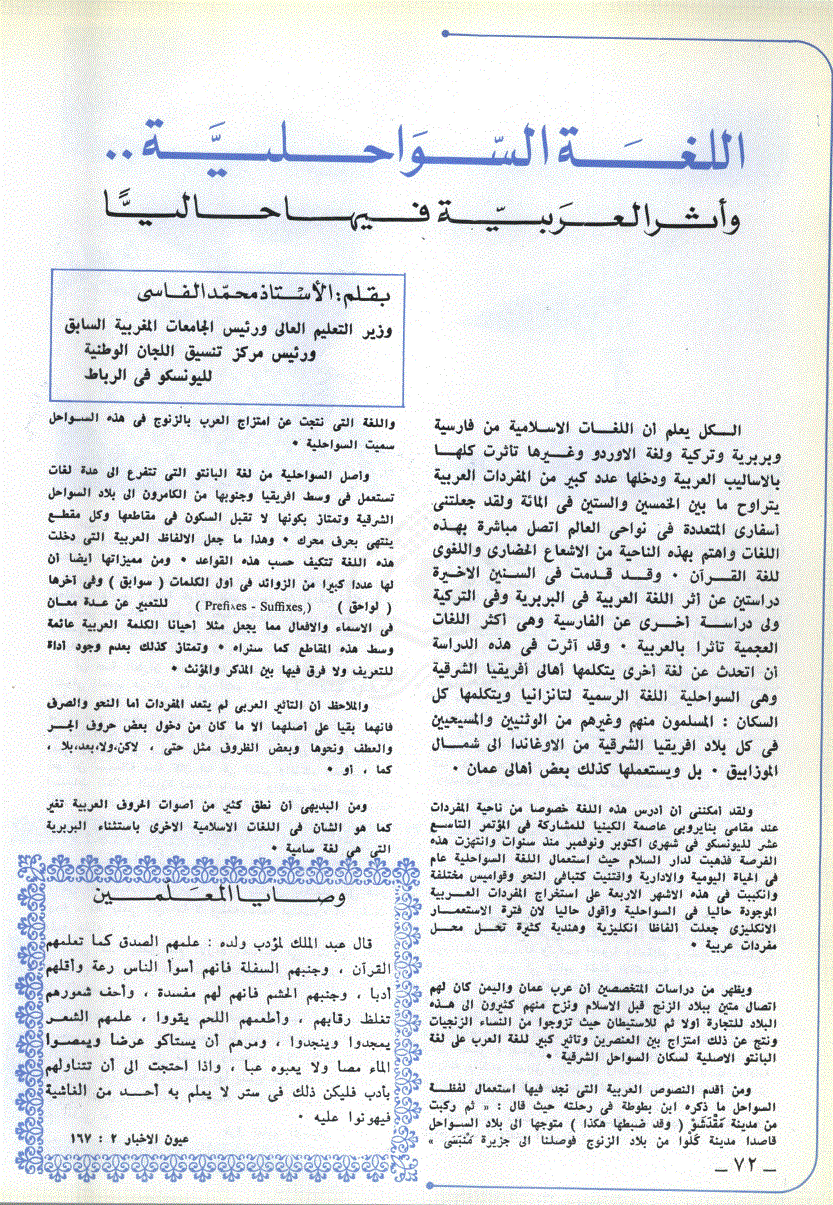 اللغة السّواحليَّة..
وأثر العربيّة فيها حاليًّا
بقلم: الأستاذ محمّد الفاسى
وزير التعليم العالى ورئيس الجامعات المغربية السابق
ورئيس مركز تنسيق اللجان الوطنية
لليونسكو فى الرباط
الكل يعلم أن اللغات الاسلامية من فارسية
وبربرية وتركية ولغة الاوردو وغيرها تأثرت كلها
بالاساليب العربية ودخلها عدد كبير من المفردات العربية
يتراوح ما بين الخمسين والستين فى المائة ولقد جعلتنى
أسفارى المتعددة فى نواحى العالم اتصل مباشرة بهذه
اللغات واهتم بهذه الناحية من الاشعاع الحضارى واللغوى
للغة القرآن · وقد قدمت فى السنين الاخيرة
دراستين عن أثر اللغة العربية فى البربرية وفى التركية
ولى دراسة أخرى عن الفارسية وهى أكثر اللغات
العجمية تأثرا بالعربية · وقد آثرت فى هذه الدراسة
أن اتحدث عن لغة أخرى يتكلمها أهالى أفريقيا الشرقية
وهى السواحلية اللغة الرسمية لتانزانيا ويتكلمها كل
السكان : المسلمون منهم وغيرهم من الوثنيين والمسيحيين
فى كل بلاد افريقيا الشرقية من الاوغاندا الى شمال
الموزابيق · بل ويستعملها كذلك بعض أهالى عمان ·
ولقد أمكننى أن أدرس هذه اللغة خصوصا من ناحية المفردات
عند مقامى بنايروبى عاصمة الكينيا للمشاركة فى المؤتمر التاسع
عشر لليونسكو فى شهرى اكتوبر ونوفمبر منذ سنوات وانتهزت هذه
الفرصة فذهبت لدار السلام حيث استعمال اللغة السواحلية عام
فى الحياة اليومية والادارية واقتنيت كتبا فى النحو وقواميس مختلفة
وانكببت فى هذه الاشهر الاربعة على استخراج المفردات العربية
الموجودة حاليا فى السواحلية وأقول حاليا لان فترة الاستعمار
الانكليزى جعلت ألفاظا انكليزية وهندية كثيرة تحل محل
مفردات عربية ·
ويظهر من دراسات المتخصصين أن عرب عمان واليمن كان لهم
اتصال متين ببلاد الزنج قبل الاسلام ونزح منهم كثيرون الى هذه
البلاد للتجارة أولا ثم للاستيطان حيث تزوجوا من النساء الزنجيات
ونتج عن ذلك امتزاج بين العنصرين وتأثير كبير للغة العرب على لغة
البانتو الاصلية لسكان السواحل الشرقية ·
ومن أقدم النصوص العربية التى نجد فيها استعمال لفظة
السواحل ما ذكره ابن بطوطة فى رحلته حيث قال : « ثم ركبت
من مدينة مَقْدَشَوْ ( وقد ضبطها هكذا ) متوجها الى بلاد السواحل
قاصدا مدينة كُلْوا من بلاد الزنوج فوصلنا الى جزيرة مَنْبَسَى »
واللغة التى نتجت عن امتزاج العرب بالزنوج فى هذه السواحل
سميت السواحلية ·
وأصل السواحلية من لغة البانتو التى تتفرع الى عدة لغات
تستعمل فى وسط افريقيا وجنوبها من الكامرون الى بلاد السواحل
الشرقية وتمتاز بكونها لا تقبل السكون فى مقاطعها وكل مقطع
ينتهى بحرف محرك · وهذا ما جعل الالفاظ العربية التى دخلت
هذه اللغة تتكيف حسب هذه القواعد · ومن مميزاتها أيضا أن
لها عددا كبيرا من الزوائد فى أول الكلمات ( سوابق ) وفى آخرها
( لواحق ) (Prefixes - Suffixes) للتعبير عن عدة معان
فى الاسماء والافعال مما يجعل مثلا أحيانا الكلمة العربية عائمة
وسط هذه المقاطع كما سنراه · وتمتاز كذلك بعدم وجود أداة
للتعريف ولا فرق فيها بين المذكر والمؤنث ·
والملاحظ أن التأثير العربى لم يتعد المفردات أما النحو والصرف
فانهما بقيا على أصلهما الا ما كان من دخول بعض حروف الجر
والعطف ونحوها وبعض الظروف مثل حتى ، لاكن،ولا،بعد،بلا ،
كما ، أو ·
ومن البديهى أن نطق كثير من أصوات الحروف العربية تغير
كما هو الشأن فى اللغات الاسلامية الاخرى باستثناء البربرية
التى هى لغة سامية ·
وصايا المعَلّمين
قال عبد الملك لمؤدب ولده : علمهم الصدق كما تعلمهم
القرآن ، وجنبهم السفلة فانهم أسوأ الناس رعة وأقلهم
أدبا ، وجنبهم الحشم فانهم لهم مفسدة ، وأحف شعورهم
تغلظ رقابهم ، وأطعمهم اللحم يقووا ، علمهم الشعر
يمجدوا وينجدوا ، ومرهم أن يستاكو عرضا ويمصوا
الماء مصا ولا يعبوه عبا ، واذا احتجت الى أن تتناولهم
بأدب فليكن ذلك فى ستر لا يعلم به أحد من الغاشية
فيهونوا عليه ·
عيون الاخبار ٢ : ١٦٧
ــ ٧٢ ــ